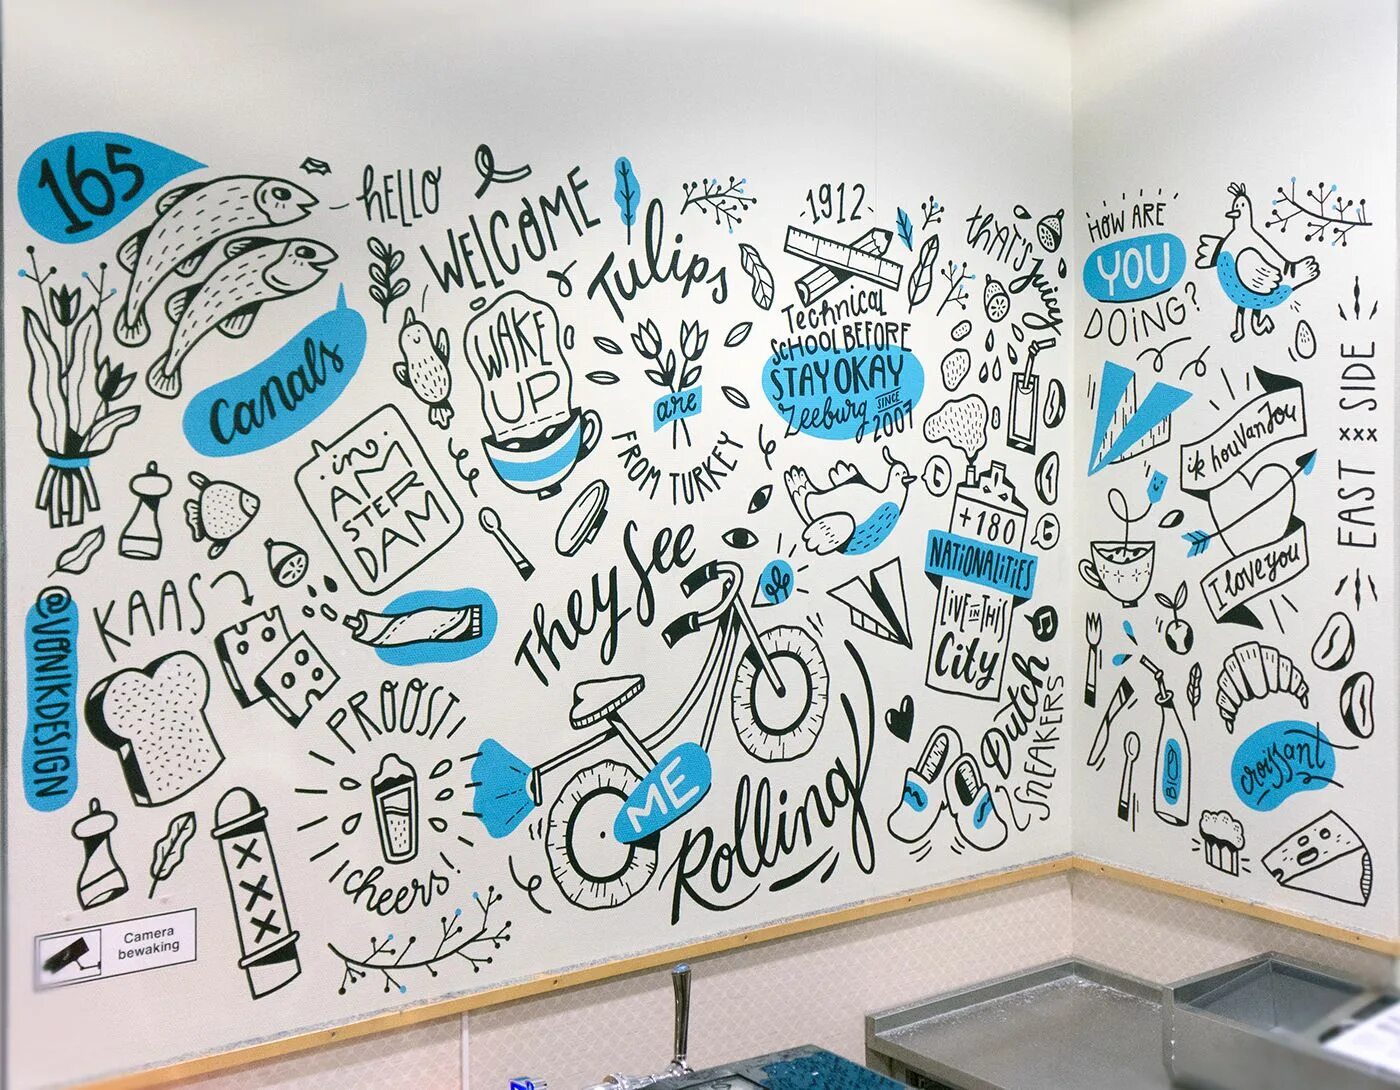 165
Canals
HELLO
WELCOME
WAKE
UP
Tulips
are
FROM TURKEY
1912
Technical
SCHOOL BEFORE
STAYOKAY
Zeeburg SINCE
2007
THAT'S Juicy
in
AM
STER
DAM
@VANIKDESIGN
KAAS
PROOST!
cheers!
They See
ME
Rolling
+180
NATIONALITIES
LIVE IN THIS
City
Dutch
SNEAKERS
XXXX
Camera
bewaking
HOW ARE
YOU
DOING?
ik hou van jou
I love you
EAST xxx SIDE
BIO
croissant